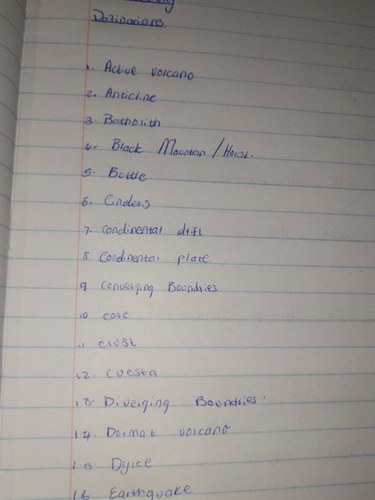 Dazinacions
1. Active volcano
2. Anticline
3. Batholith
4. Black Mountan / Horst.
5. Buttle
6. Cinders
7. Condinental drift
8 Condinental plate
9 Converging Boundries
10 core
11 crust
12. cuesta
13. Diverging Boundries.
14. Dormat volcano
15 Dyke
16 Earthquake